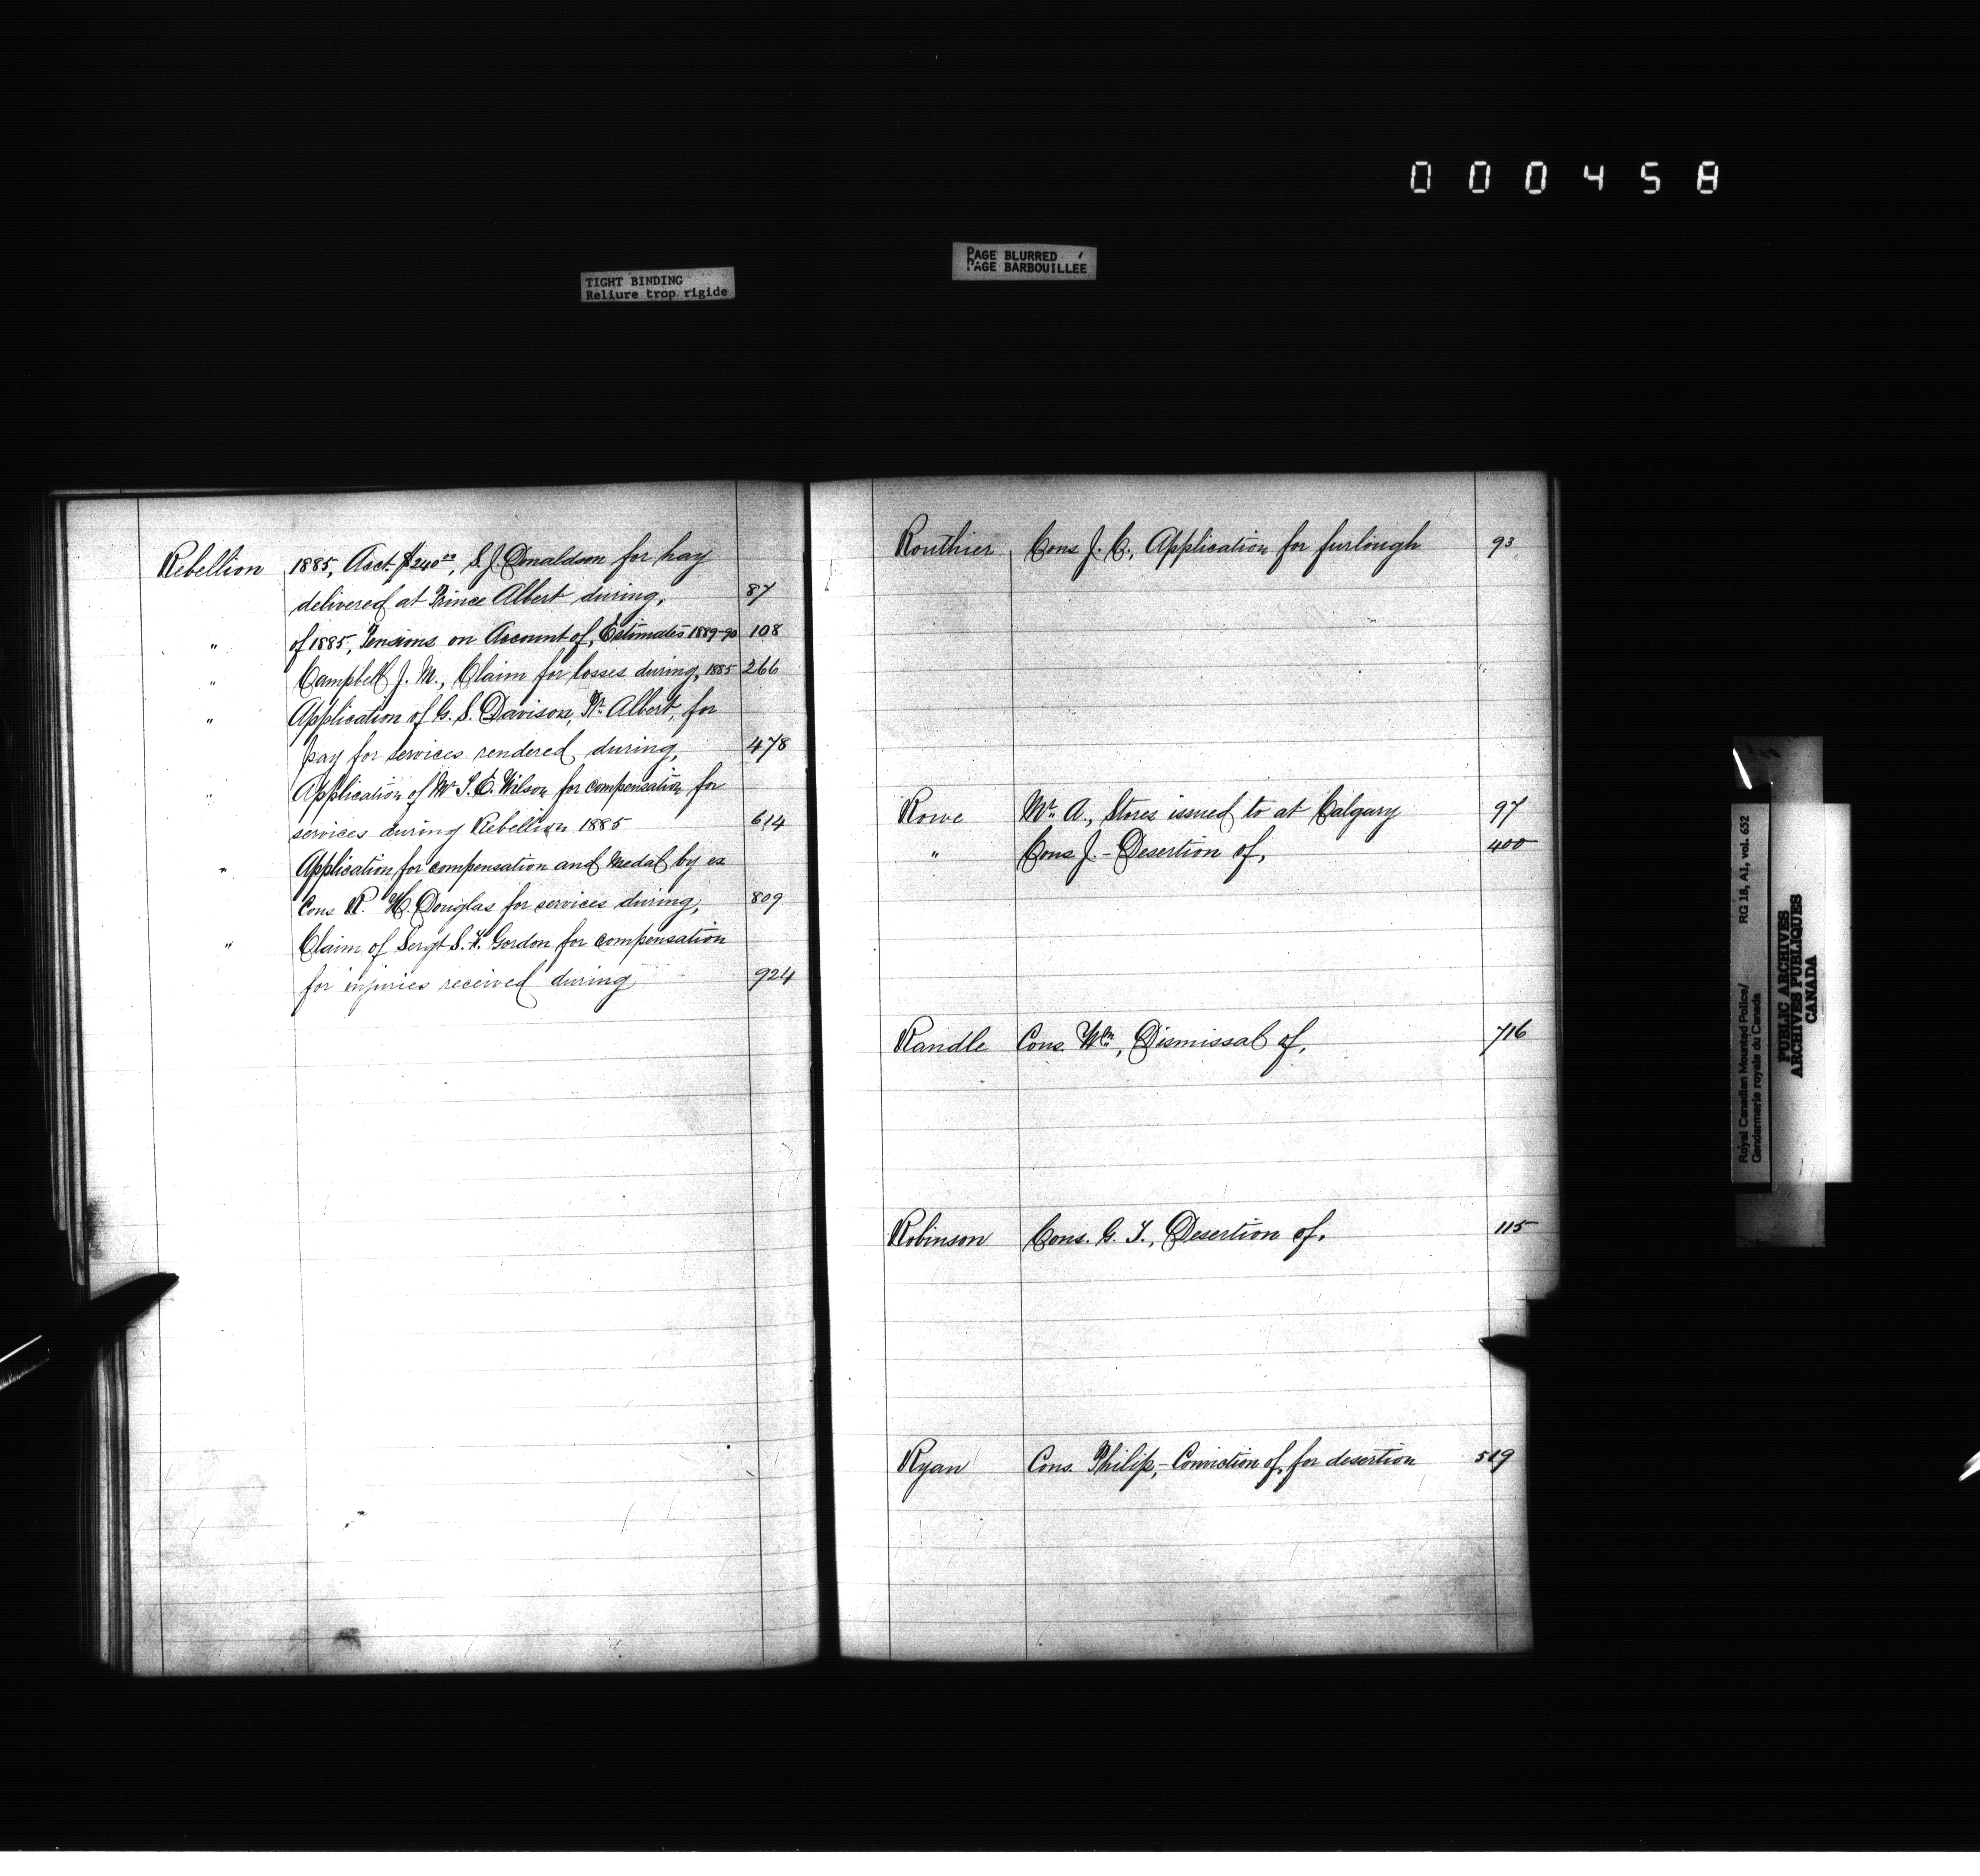 000458
TIGHT BINDING
Reliure trop rigide
PAGE BLURRED
PAGE BARBOUILLEE
Rebellion 1885, Acct. $240.00, S. J. Donaldson for hay
delivered at Prince Albert during, 87
" of 1885, Pensions on Account of, Estimates 1889-90 108
" Campbell J. M., Claim for losses during, 1885 266
" Application of G. S. Davison, Pr. Albert, for
pay for services rendered during, 478
" Application of Mr T. E. Wilson for compensation for
services during Rebellion 1885 614
" Application for compensation and Medal by ex
Cons R. H. Douglas for services during, 809
" Claim of Sergt S. F. Gordon for compensation
for injuries received during 924
Routhier, Cons J. C., Application for furlough 93
Rowe Mr. A., Stores issued to at Calgary 97
" Cons J. - Desertion of, 400
Randle Cons. Wm, Dismissal of, 716
Robinson Cons. G. T., Desertion of, 115
Ryan Cons. Philip, - Conviction of, for desertion 519
Royal Canadian Mounted Police/
Gendarmerie royale du Canada
RG 18, A1, vol. 652
PUBLIC ARCHIVES
ARCHIVES PUBLIQUES
CANADA